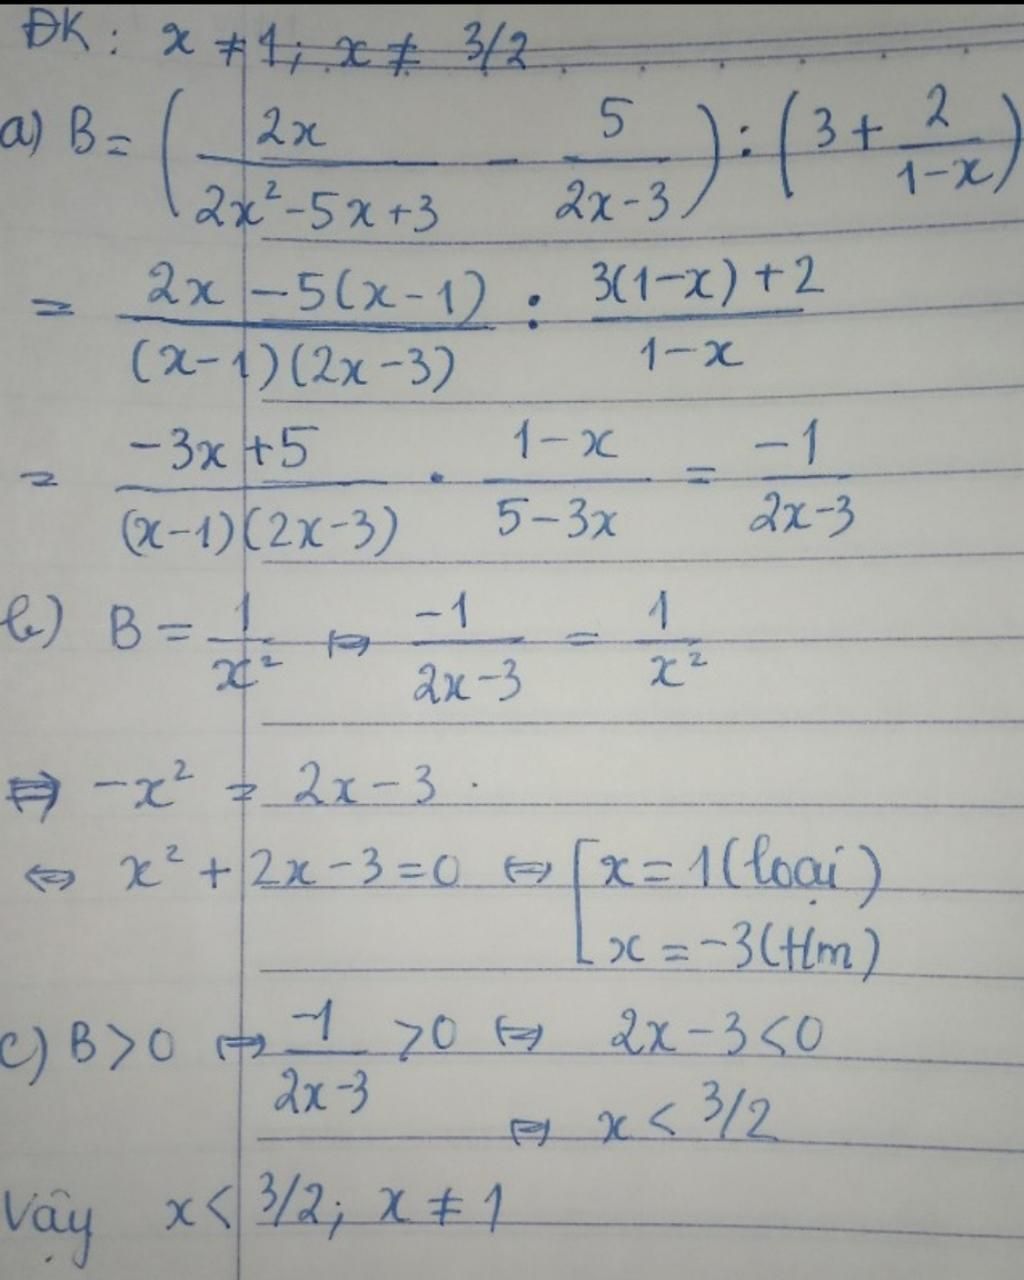 ĐK: x ≠ 1; x ≠ 3/2
a) B = (2x/(2x²-5x+3) - 5/(2x-3)) : (3 + 2/(1-x))
= (2x - 5(x-1))/((x-1)(2x-3)) : (3(1-x)+2)/(1-x)
= (-3x+5)/((x-1)(2x-3)) · (1-x)/(5-3x) = -1/(2x-3)
b) B = 1/x² ⇔ -1/(2x-3) = 1/x²
⇔ -x² = 2x-3 .
⇔ x² + 2x - 3 = 0 ⇔ [ x = 1 (loại)
x = -3 (t/m)
c) B > 0 ⇔ -1/(2x-3) > 0 ⇔ 2x-3 < 0
⇔ x < 3/2
Vậy x < 3/2; x ≠ 1